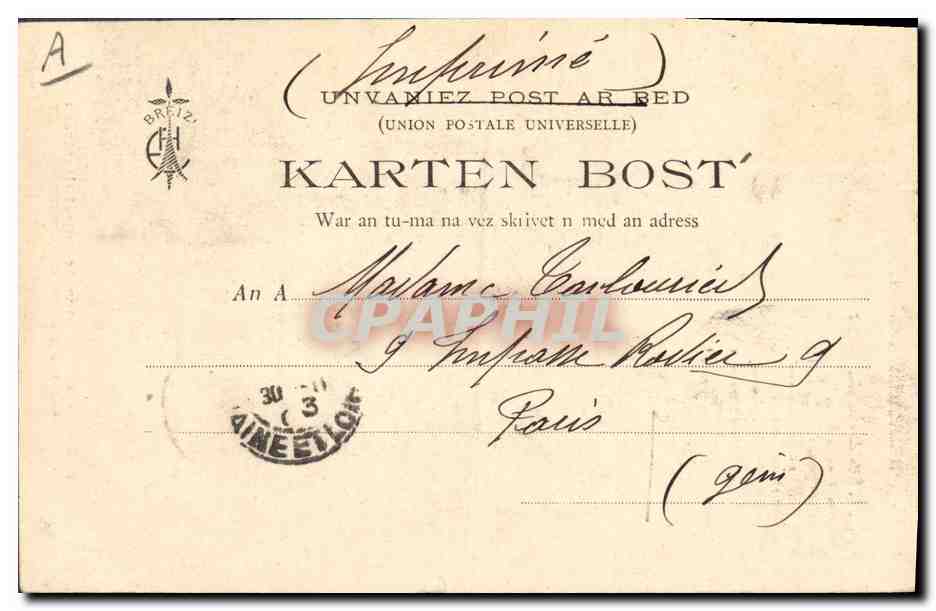 A
(Imprimé)
BREIZ
UNVANIEZ POST AR BED
(UNION POSTALE UNIVERSELLE)
KARTEN BOST
War an tu-ma na vez skrivet n med an adress
An A Madame
CPAPHIL
9 Impasse Rodier 9
30
3
AINE ET LOIR
Paris